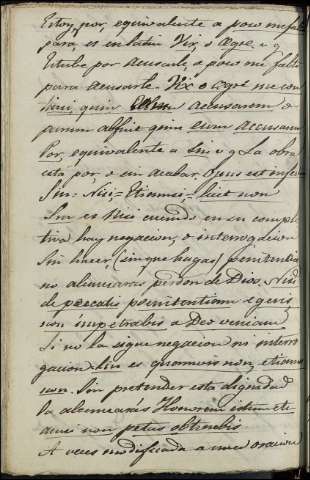 Estoy, por, equivalente a poco me falta
para, es en latin Vix, o Ægre. v. g.
Estube por acusarle, o poco me falto
para acusarle. Vix o ægre me con
tinui, quin accusarem o
parum abfuit quin eum accusarem
Por, equivalente a Sin v. g. La obra
esta por, o sin acabar. Opus est
Sin = Nisi = Etiamsi, licet non
Sin es Nisi cuando en su comple
tiva hay negacion, o interrogacion
Sin hacer, (sin que hagas) penitencia
no alcanzaras perdon de Dios. Nisi
de peccatis poenitentiam egeris
non impetrabis a Deo veniam
Si no la sigue negacion ni interro
gacion Sin es quamvis non, etiamsi
non. Sin pretender esta dignidad
la alcanzarás Honorem istum eti
amsi non petas obtinebis
A veces modificada a una oracion